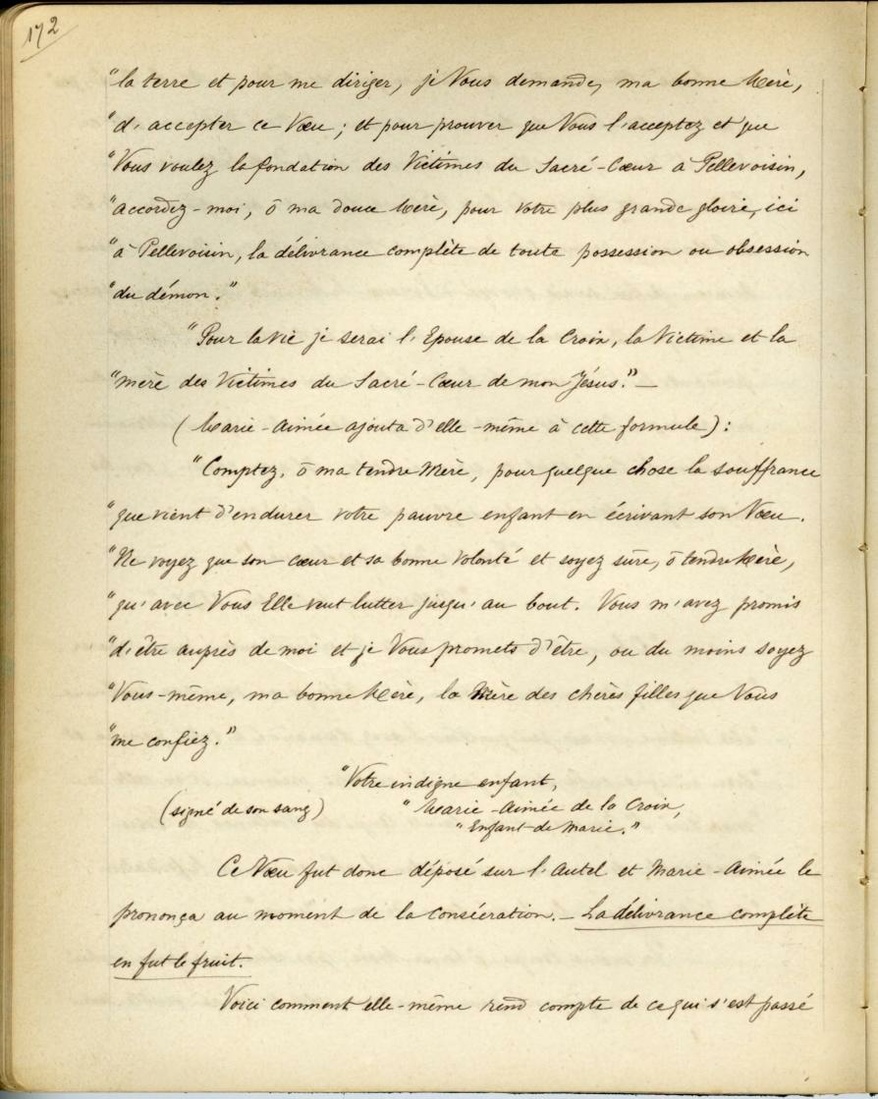 172
"la terre et pour me diriger, je Vous demande, ma bonne Mère,
"d'accepter ce Vœu ; et pour prouver que Vous l'acceptez et que
"Vous voulez la fondation des Victimes du Sacré-Cœur à Pellevoisin,
"accordez-moi, ô ma douce Mère, pour votre plus grande gloire, ici
"à Pellevoisin, la délivrance complète de toute possession ou obsession
"du démon."
"Pour la vie je serai l'Epouse de la Croix, la Victime et la
"mère des Victimes du Sacré-Cœur de mon Jésus." _
(Marie-Aimée ajouta d'elle-même à cette formule) :
"Comptez, ô ma tendre Mère, pour quelque chose la souffrance
"que vient d'endurer votre pauvre enfant en écrivant son Vœu.
"Ne voyez que son cœur et sa bonne volonté et soyez sûre, ô tendre Mère,
"qu'avec Vous Elle veut lutter jusqu'au bout. Vous m'avez promis
"d'être auprès de moi et je Vous promets d'être, ou du moins soyez
"Vous-même, ma bonne Mère, la Mère des chères filles que Vous
"me confiez."
"Votre indigne enfant,
(signé de son sang) "Marie-Aimée de la Croix,
"Enfant de Marie."
Ce Vœu fut donc déposé sur l'Autel et Marie-Aimée le
prononça au moment de la Consécration. _ La délivrance complète
en fut le fruit.
Voici comment elle-même rend compte de ce qui s'est passé